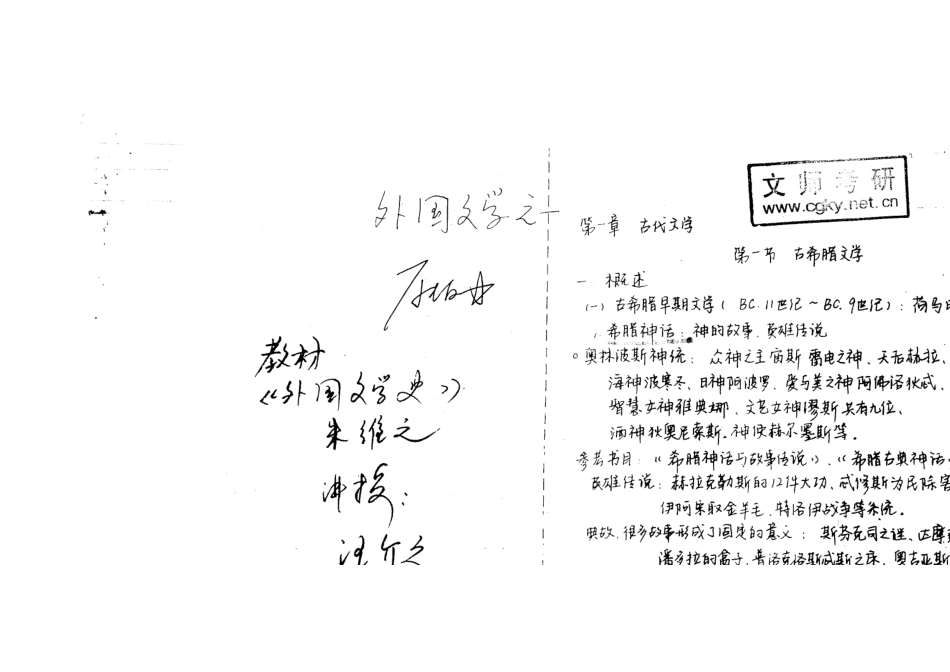 外国文学之一
教材
《外国文学史》
朱维之
讲授：
汪介之
文师考研
www.cgky.net.cn
第一章 古代文学
第一节 古希腊文学
一 概述
(一) 古希腊早期文学( BC.11世纪～BC.9世纪)：荷马
希腊神话：神的故事、英雄传说
奥林波斯神统： 众神之主宙斯 雷电之神、天后赫拉、
海神波塞冬、日神阿波罗、爱与美之神阿佛洛狄忒、
智慧女神雅典娜、文艺女神缪斯共有九位、
酒神狄奥尼索斯、神使赫尔墨斯等。
参考书目：《希腊神话与故事传说》、《希腊古典神话
英雄传说：赫拉克勒斯的12件大功、忒修斯为民除害
伊阿宋取金羊毛、特洛伊战争等系统。
典故、很多故事形成了固定的意义： 斯芬克司之谜、达摩
潘多拉的盒子、普洛克洛斯忒斯之床、奥吉亚斯